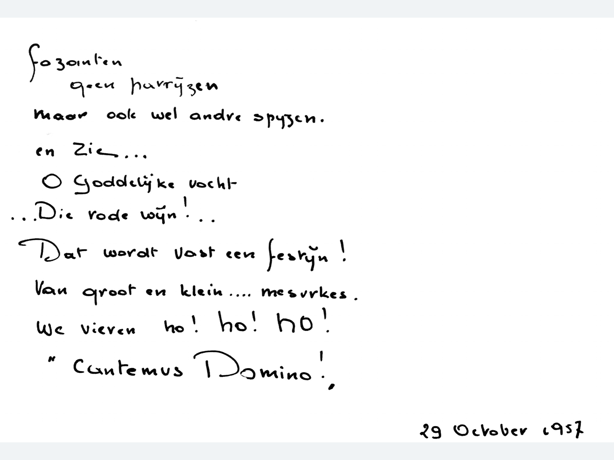 fazanten
geen patrijzen
maar ook wel andre spyzen.
en Zie...
O Goddelijke vocht
...Die rode wijn!...
Dat wordt vast een festijn!
Van groot en klein.... mesurkes.
We vieren ho! ho! ho!
" Cantemus Domino!"
29 October 1957